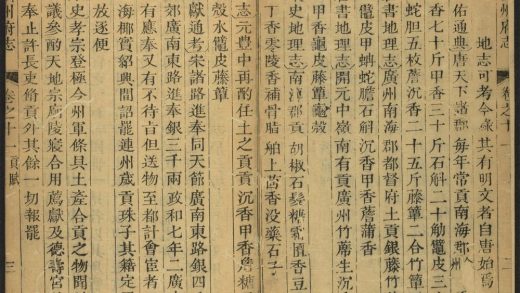 州府志 卷之十一
地志可考今彖其有明文者自唐始爲
佑通典唐天下諸郡每年常貢南海郡
香七十斤甲香三十斤石斛二十觔鼊皮三
蛇胆五枚藤沉香二十五斤藤簟二合竹簟
書地理志廣州南海郡都督府土貢銀藤竹
鼊皮甲蚺蛇膽石斛沉香甲香詹蒲香
書地理志開元中嶺南有貢廣州竹蓆生沉
甲香鼊皮藤簟龜殼
史地理志南 郡貢胡椒石髮糖霜 香豆
丁香零陵香補骨脂舶上茴香没藥石子
志元豐中再酌任土之貢貢沉香甲香詹糖
殼水鼊皮藤簟
獻通考朱諸路進奉同天節廣南東路銀四
郊廣南東路進奉銀三千兩政和七年二廣
有應奉又有不待旨但送物至都計會宦者
海椰實紹興間詔罷連州歲貢珠子其籍定
放逐便
史孝宗登極令州軍條具土產合貢之物聞
議參酌天地宗廟陵寢合用薦獻及德壽宮
奉止許長吏脩貢外其餘一切報罷
州府志 卷之十一 貢賦 三